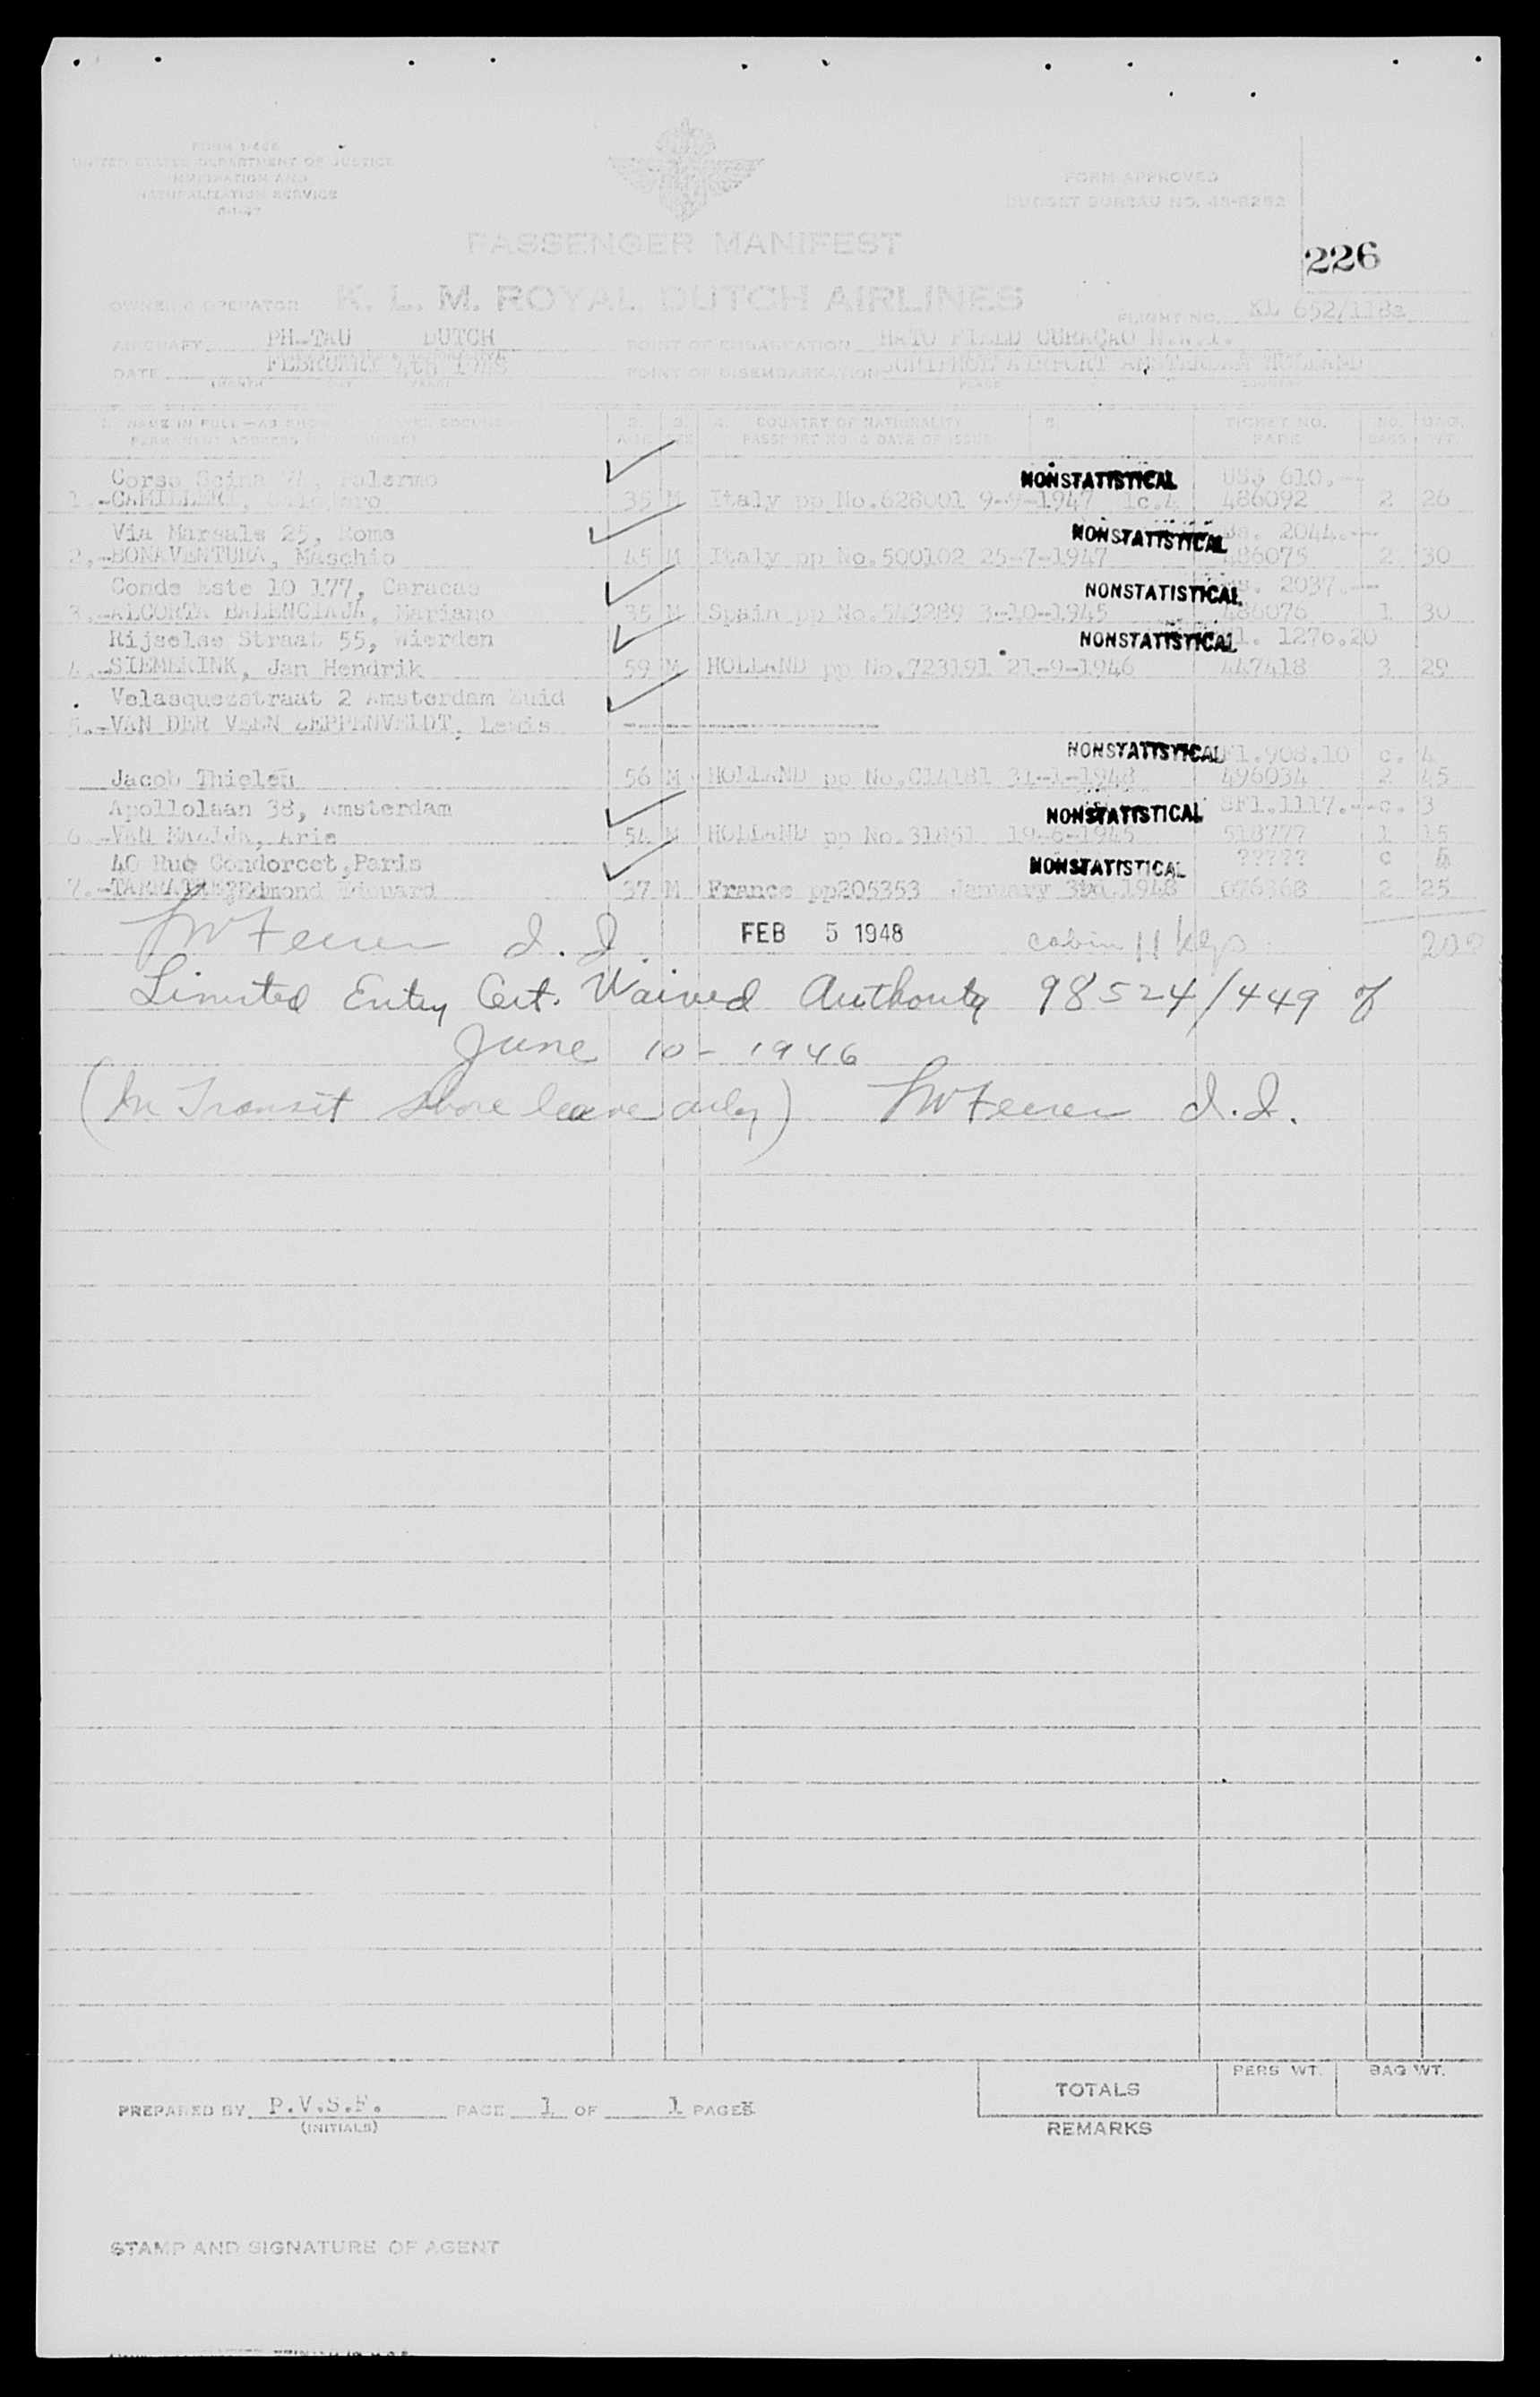 FORM I-466
UNITED STATES DEPARTMENT OF JUSTICE
IMMIGRATION AND
NATURALIZATION SERVICE
FORM APPROVED
BUDGET BUREAU NO. 43-R292
PASSENGER MANIFEST
226
OWNER OR OPERATOR K. L. M. ROYAL DUTCH AIRLINES
FLIGHT NO. KL 652/118a
AIRCRAFT PH-TAU DUTCH POINT OF EMBARKATION HATO FIELD CURAÇAO N.W.I.
DATE FEBRUARY 4th 1948 POINT OF DISEMBARKATION SCHIPHOL AIRPORT AMSTERDAM HOLLAND
(MONTH DAY YEAR) PLACE COUNTRY
COUNTRY OF NATIONALITY TICKET NO. NO. BAG.
PERMANENT ADDRESS AGE SEX PASSPORT NO. & DATE OF ISSUE FARE BAGS WT.
Corso Palermo NONSTATISTICAL US$ 610.--
1.- 35 M Italy pp No.628001 9-9-1947 1c.4 486092 2 26
Via Marsala 25, Rome NONSTATISTICAL Bs. 2044.--
2.-BONAVENTURA, Maschio 45 M Italy pp No.500102 25-7-1947 486075 2 30
Conde Este 10 177, Caracas NONSTATISTICAL Bs. 2037.--
3.-ALCORTA BALENCIAJA, Mariano 35 M Spain pp No.543289 3-10-1945 486076 1 30
Rijselse Straat 55, Wierden NONSTATISTICAL 1276.20
4.-SIEMERINK, Jan Hendrik 59 M HOLLAND pp No.723191 21-9-1946 447418 3 29
Velasquezstraat 2 Amsterdam Zuid
5.-VAN DER VEEN ZEPPENVELDT, Lewis --------------------
NONSTATISTICAL Fl.908.10 c. 4
Jacob Thielen 56 M HOLLAND pp No.C14181 31-1-1948 496034 2 45
Apollolaan 38, Amsterdam NONSTATISTICAL SFl.1117.--c. 3
6.-VAN Arie 54 M HOLLAND pp No.31851 19-6-1945 518777 1 15
40 Rue Condorcet,Paris NONSTATISTICAL ????? c 4
7.- Edmond Edouard 37 M France pp205353 January 1948 076368 2 25
I.I. FEB 5 1948 cabin 11 kgs 200
Limited Entry Cert. Waived Authority 98524/449 of
June 10-1946
(In Transit shore leave only) I.I.
TOTALS PERS WT. BAG WT.
PREPARED BY P.V.S.F. PAGE 1 OF 1 PAGES
(INITIALS)
REMARKS
STAMP AND SIGNATURE OF AGENT